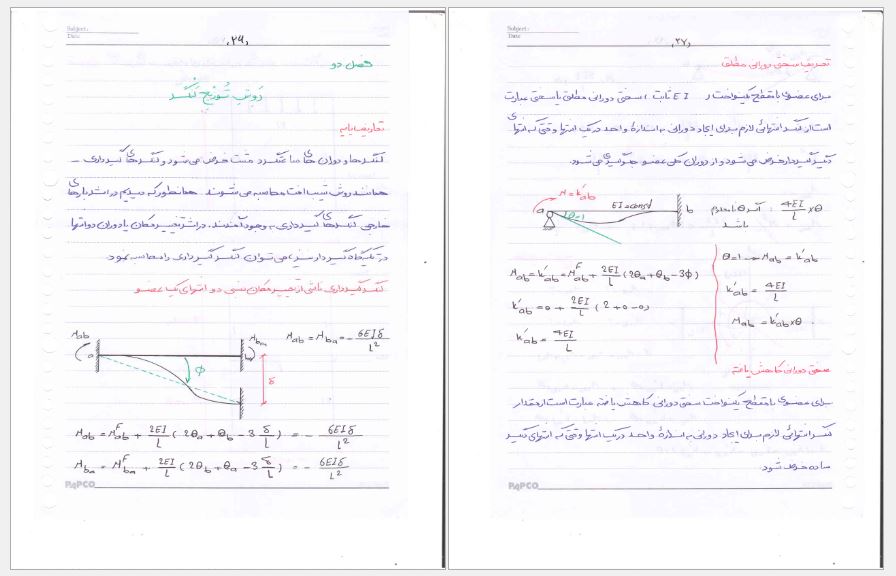 Subject:
Date
۲۶
فصل دو
روش توزیع لنگر
تعاریف پایه
لنگرها و دوران های ساعتگرد مثبت فرض می‌شود و لنگرهای گیرداری
همانند روش شیب افت محاسبه می‌شوند. همانطور که دیدیم در اثر بارهای
خارجی لنگرهای گیرداری به وجود آمدند. در اثر تغییر مکان یا دوران دو انتها
در تکیه‌گاه گیردار نیز می‌توان لنگر گیرداری را محاسبه نمود.
لنگر گیرداری ناشی از تغییر مکان نسبی دو انتهای یک عضو
Mab
a
Mba
b
φ
δ
Mab = Mba = - 6EIδ/L²
Mab = M^F ab + 2EI/L (2θa + θb - 3 δ/L) = - 6EIδ/L²
Mba = M^F ba + 2EI/L (2θb + θa - 3 δ/L) = - 6EIδ/L²
PAPCO
Subject:
Date
۲۷
تعریف سختی دورانی مطلق
برای عضوی با مقطع یکنواخت و EI ثابت، سختی دورانی مطلق یا سختی عبارت
است از لنگر انتهائی لازم برای ایجاد دورانی به اندازهٔ واحد در یک انتها وقتی که انتهای
دیگر گیردار فرض می‌شود و از دوران کلی عضو جلوگیری می‌شود.
M = k'ab
a
θ=1
EI=const
b
اگر θ داشته باشد
4EI/L × θ
Mab = k'ab = M^F ab + 2EI/L (2θa + θb - 3φ)
k'ab = 0 + 2EI/L (2 + 0 - 0)
k'ab = 4EI/L
θ=1 → Mab = k'ab
k'ab = 4EI/L
Mab = k'ab × θ
سختی دورانی کاهش یافته
برای عضوی با مقطع یکنواخت سختی دورانی کاهش یافته عبارت است از مقدار
لنگر انتهائی لازم برای ایجاد دورانی به اندازهٔ واحد در یک انتها وقتی که انتهای دیگر
ساده فرض شود.
PAPCO